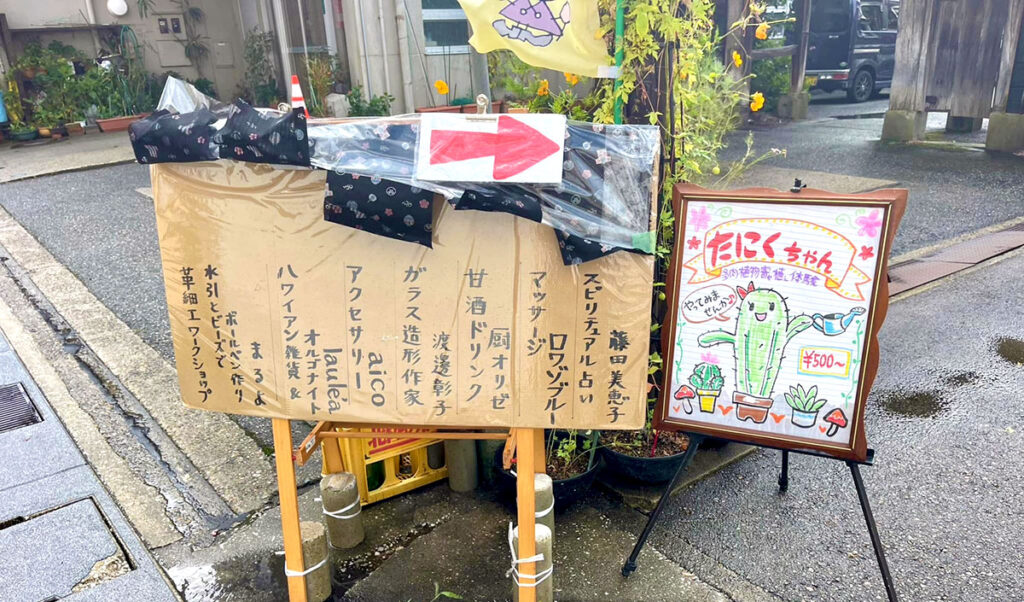 スピリチュアル占い
藤田美恵子
マッサージ
ロワゾブルー
甘酒ドリンク
厨オリゼ
ガラス造形作家
渡邊彰子
アクセサリー
aico
ハワイアン雑貨&
オルゴナイト
laulea
水引とビーズで
ボールペン作り
まるよ
革細工ワークショップ
たにくちゃん
多肉植物寄せ植え体験
やってみま
せんか♪
¥500〜